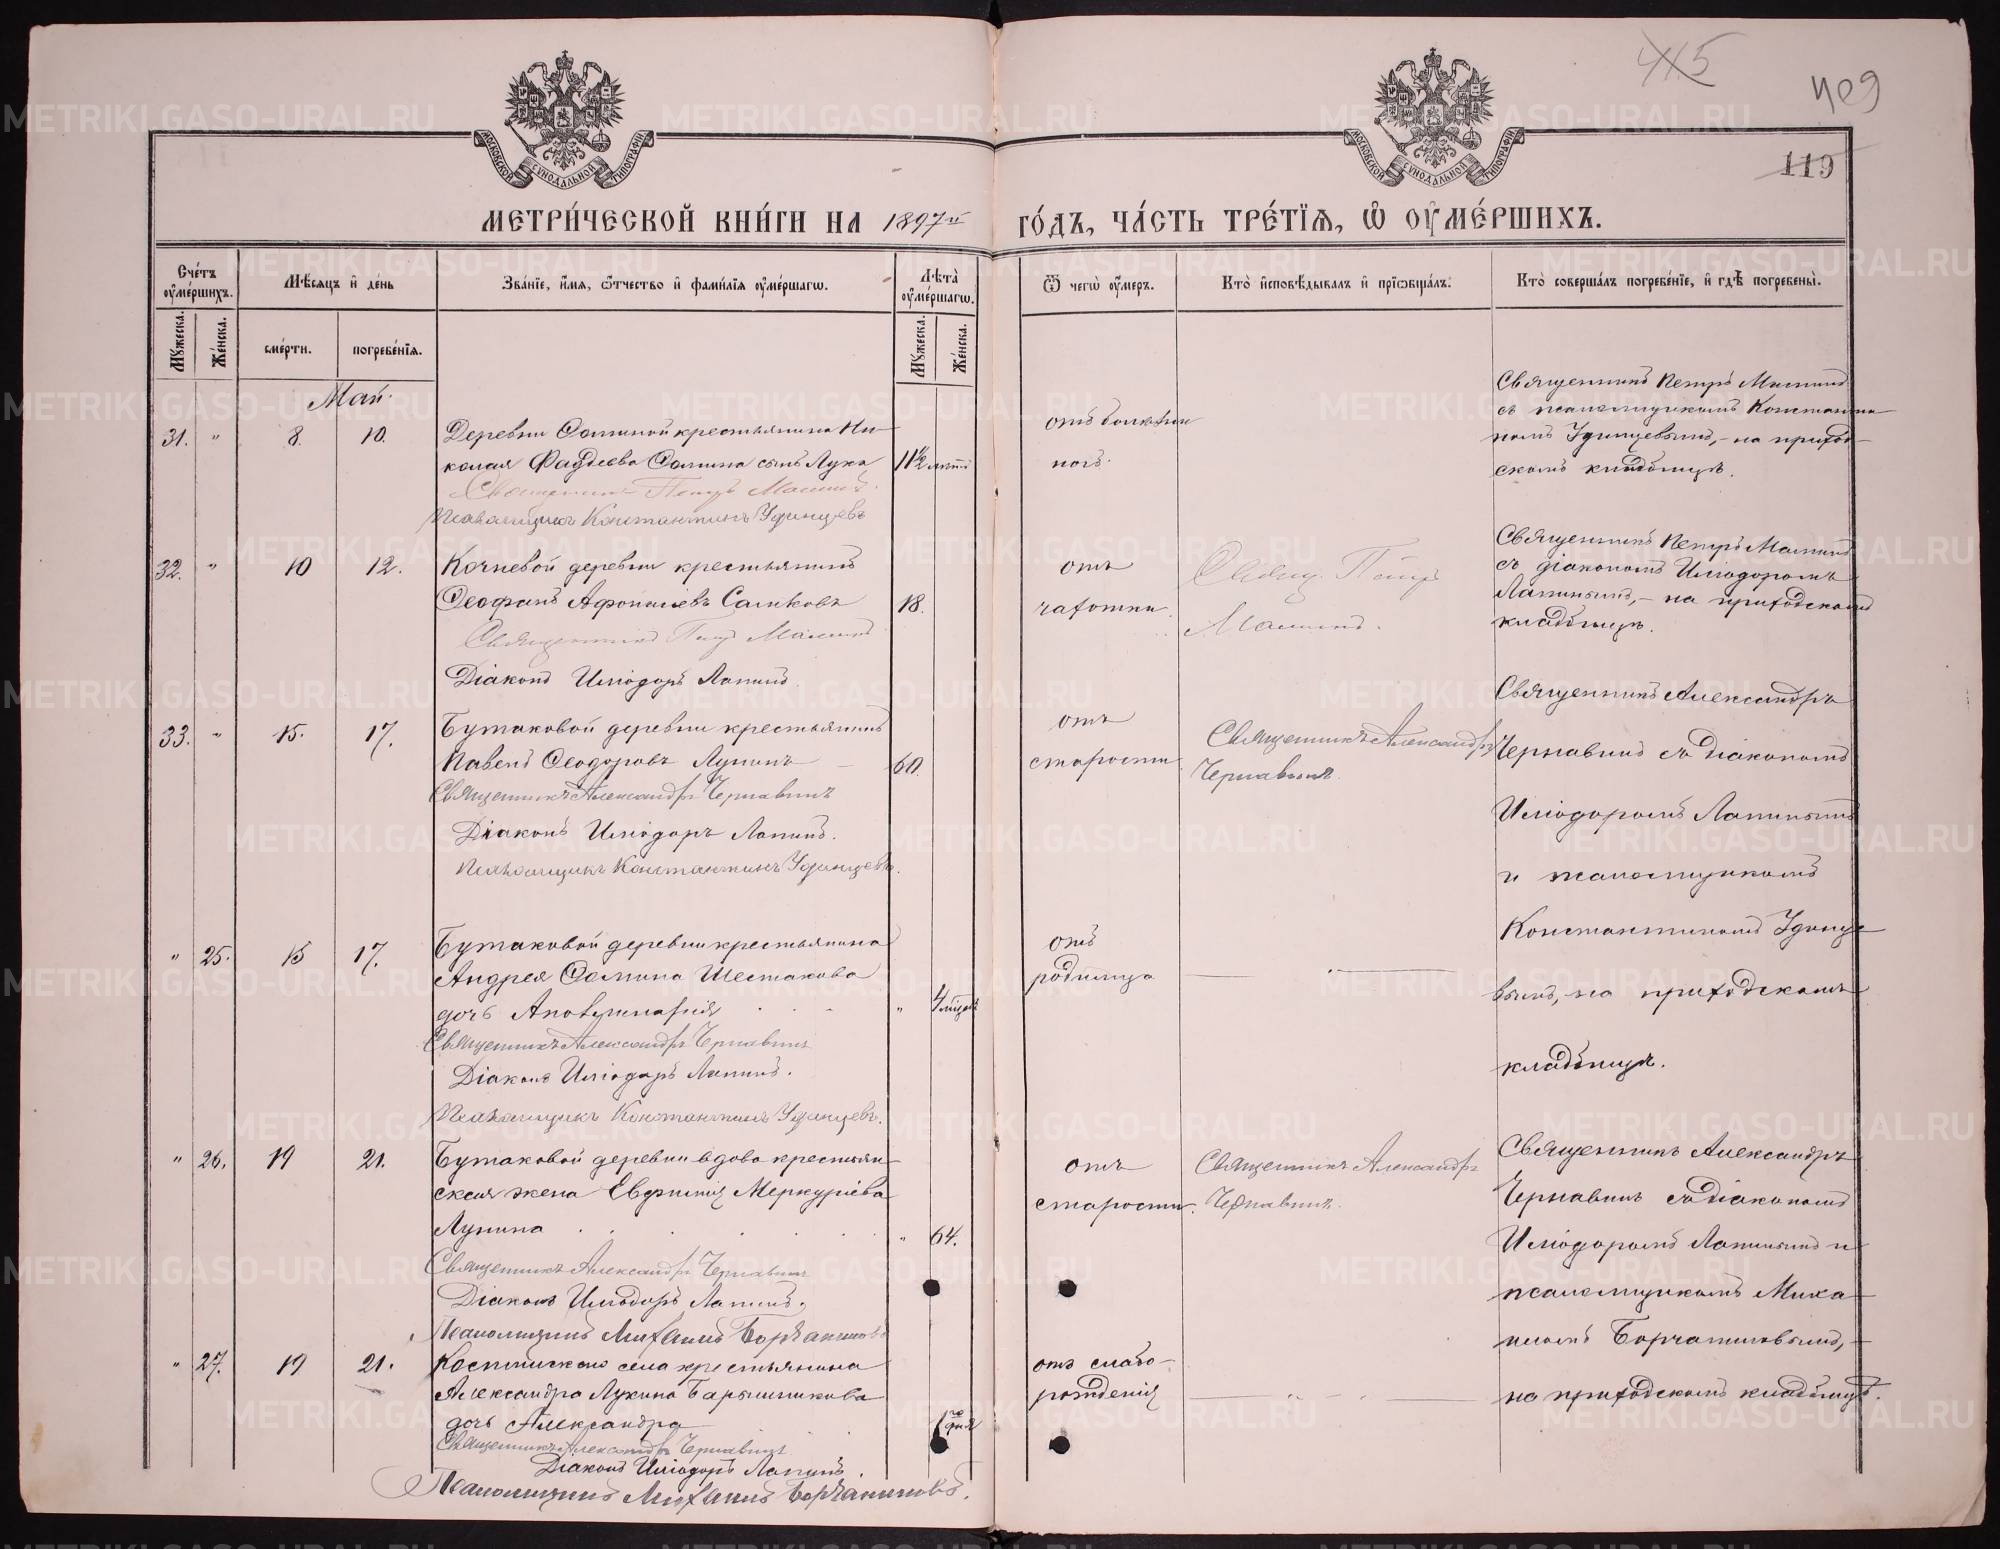 415
409
119
МОСКОВСКОЙ СѴНОДАЛЬНОЙ ТИПОГРАФІИ
МОСКОВСКОЙ СѴНОДАЛЬНОЙ ТИПОГРАФІИ
МЕТРИ́ЧЕСКОЙ КНИ́ГИ НА 1897й ГО́ДЪ, ЧА́СТЬ ТРЕ́ТІѦ, Ѡ ОУМЕ́РШИХЪ.
Сче́тъ оумершихъ.
Мꙋжеска.
Же́нска.
Мѣ́сѧцъ и҆ де́нь
сме́рти.
погребе́нїѧ.
Зва́нїе, и҆мѧ, ѻ҆́тчество и҆ фами́лїѧ оумершагѡ.
Лѣта̀ оумершагѡ.
Мꙋжеска.
Же́нска.
Ѿ чегѡ̀ оумеръ.
Кто̀ и҆сповѣ́дывалъ и҆ прїѡбща́лъ.
Кто̀ соверша́лъ погребе́нїе, и҆ гдѣ̀ погребены̀.
Май.
31. " 8. 10.
Деревни Соминой крестьянина Ни-
колая Фаддеева Сомина сынъ Лука
11½ лѣтъ
Священникъ Петръ Маминъ.
Псаломщикъ Константинъ Удинцевъ
Священникъ Петръ Маминъ
съ псаломщикомъ Константи-
номъ Удинцевымъ, - на приход-
скомъ кладбищѣ.
32. " 10 12.
Кочневой деревни крестьянинъ
Ѳеофанъ Сальковъ 18.
Священникъ Петръ Маминъ
Діаконъ Иліодоръ Лапинъ.
отъ
чахотки
Свящ. Петръ
Маминъ.
Священникъ Петръ Маминъ
съ діакономъ Иліодоромъ
Лапинымъ, - на приходскомъ
кладбищѣ.
33. " 15. 17.
Бутаковой деревни крестьянинъ
Павелъ Ѳеодоровъ Лупинъ 60.
Священникъ Александръ Чернавинъ
Діаконъ Иліодоръ Лапинъ.
Псаломщикъ Константинъ Удинцевъ.
отъ
старости
Священникъ Александръ
Чернавинъ.
Священникъ Александръ
Чернавинъ съ діакономъ
Иліодоромъ Лапинымъ
и псаломщикомъ
Константиномъ Удинце-
вымъ, на приходскомъ
кладбищѣ.
" 25. 15 17.
Бутаковой деревни крестьянина
Андрея Ѳомина Шестакова
дочь " 4 мѣсяц
Священникъ Александръ Чернавинъ
Діаконъ Иліодоръ Лапинъ.
Псаломщикъ Константинъ Удинцевъ.
отъ
родимца
" 26. 19 21.
Бутаковой деревни вдова крестьян-
ская жена Евфимія Меркуріева
Лупина " 64.
Священникъ Александръ Чернавинъ
Діаконъ Иліодоръ Лапинъ.
Псаломщикъ Михаилъ
отъ
старости.
Священникъ Александръ
Чернавинъ.
Священникъ Александръ
Чернавинъ съ діакономъ
Иліодоромъ Лапинымъ и
псаломщикомъ Миха-
иломъ
на приходскомъ кладбищѣ.
" 27. 19 21.
села крестьянина
Александра Лукина Барышникова
дочь Александра
Священникъ Александръ Чернавинъ.
Діаконъ Иліодоръ Лапинъ.
Псаломщикъ Михаилъ
отъ слабо-
рожденія